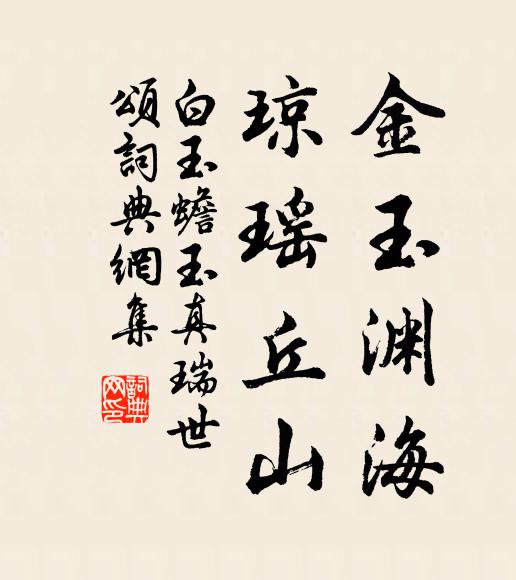 金玉渊海
琼瑶丘山
白玉蟾玉真瑞世
頌詞典網集
詞典网印